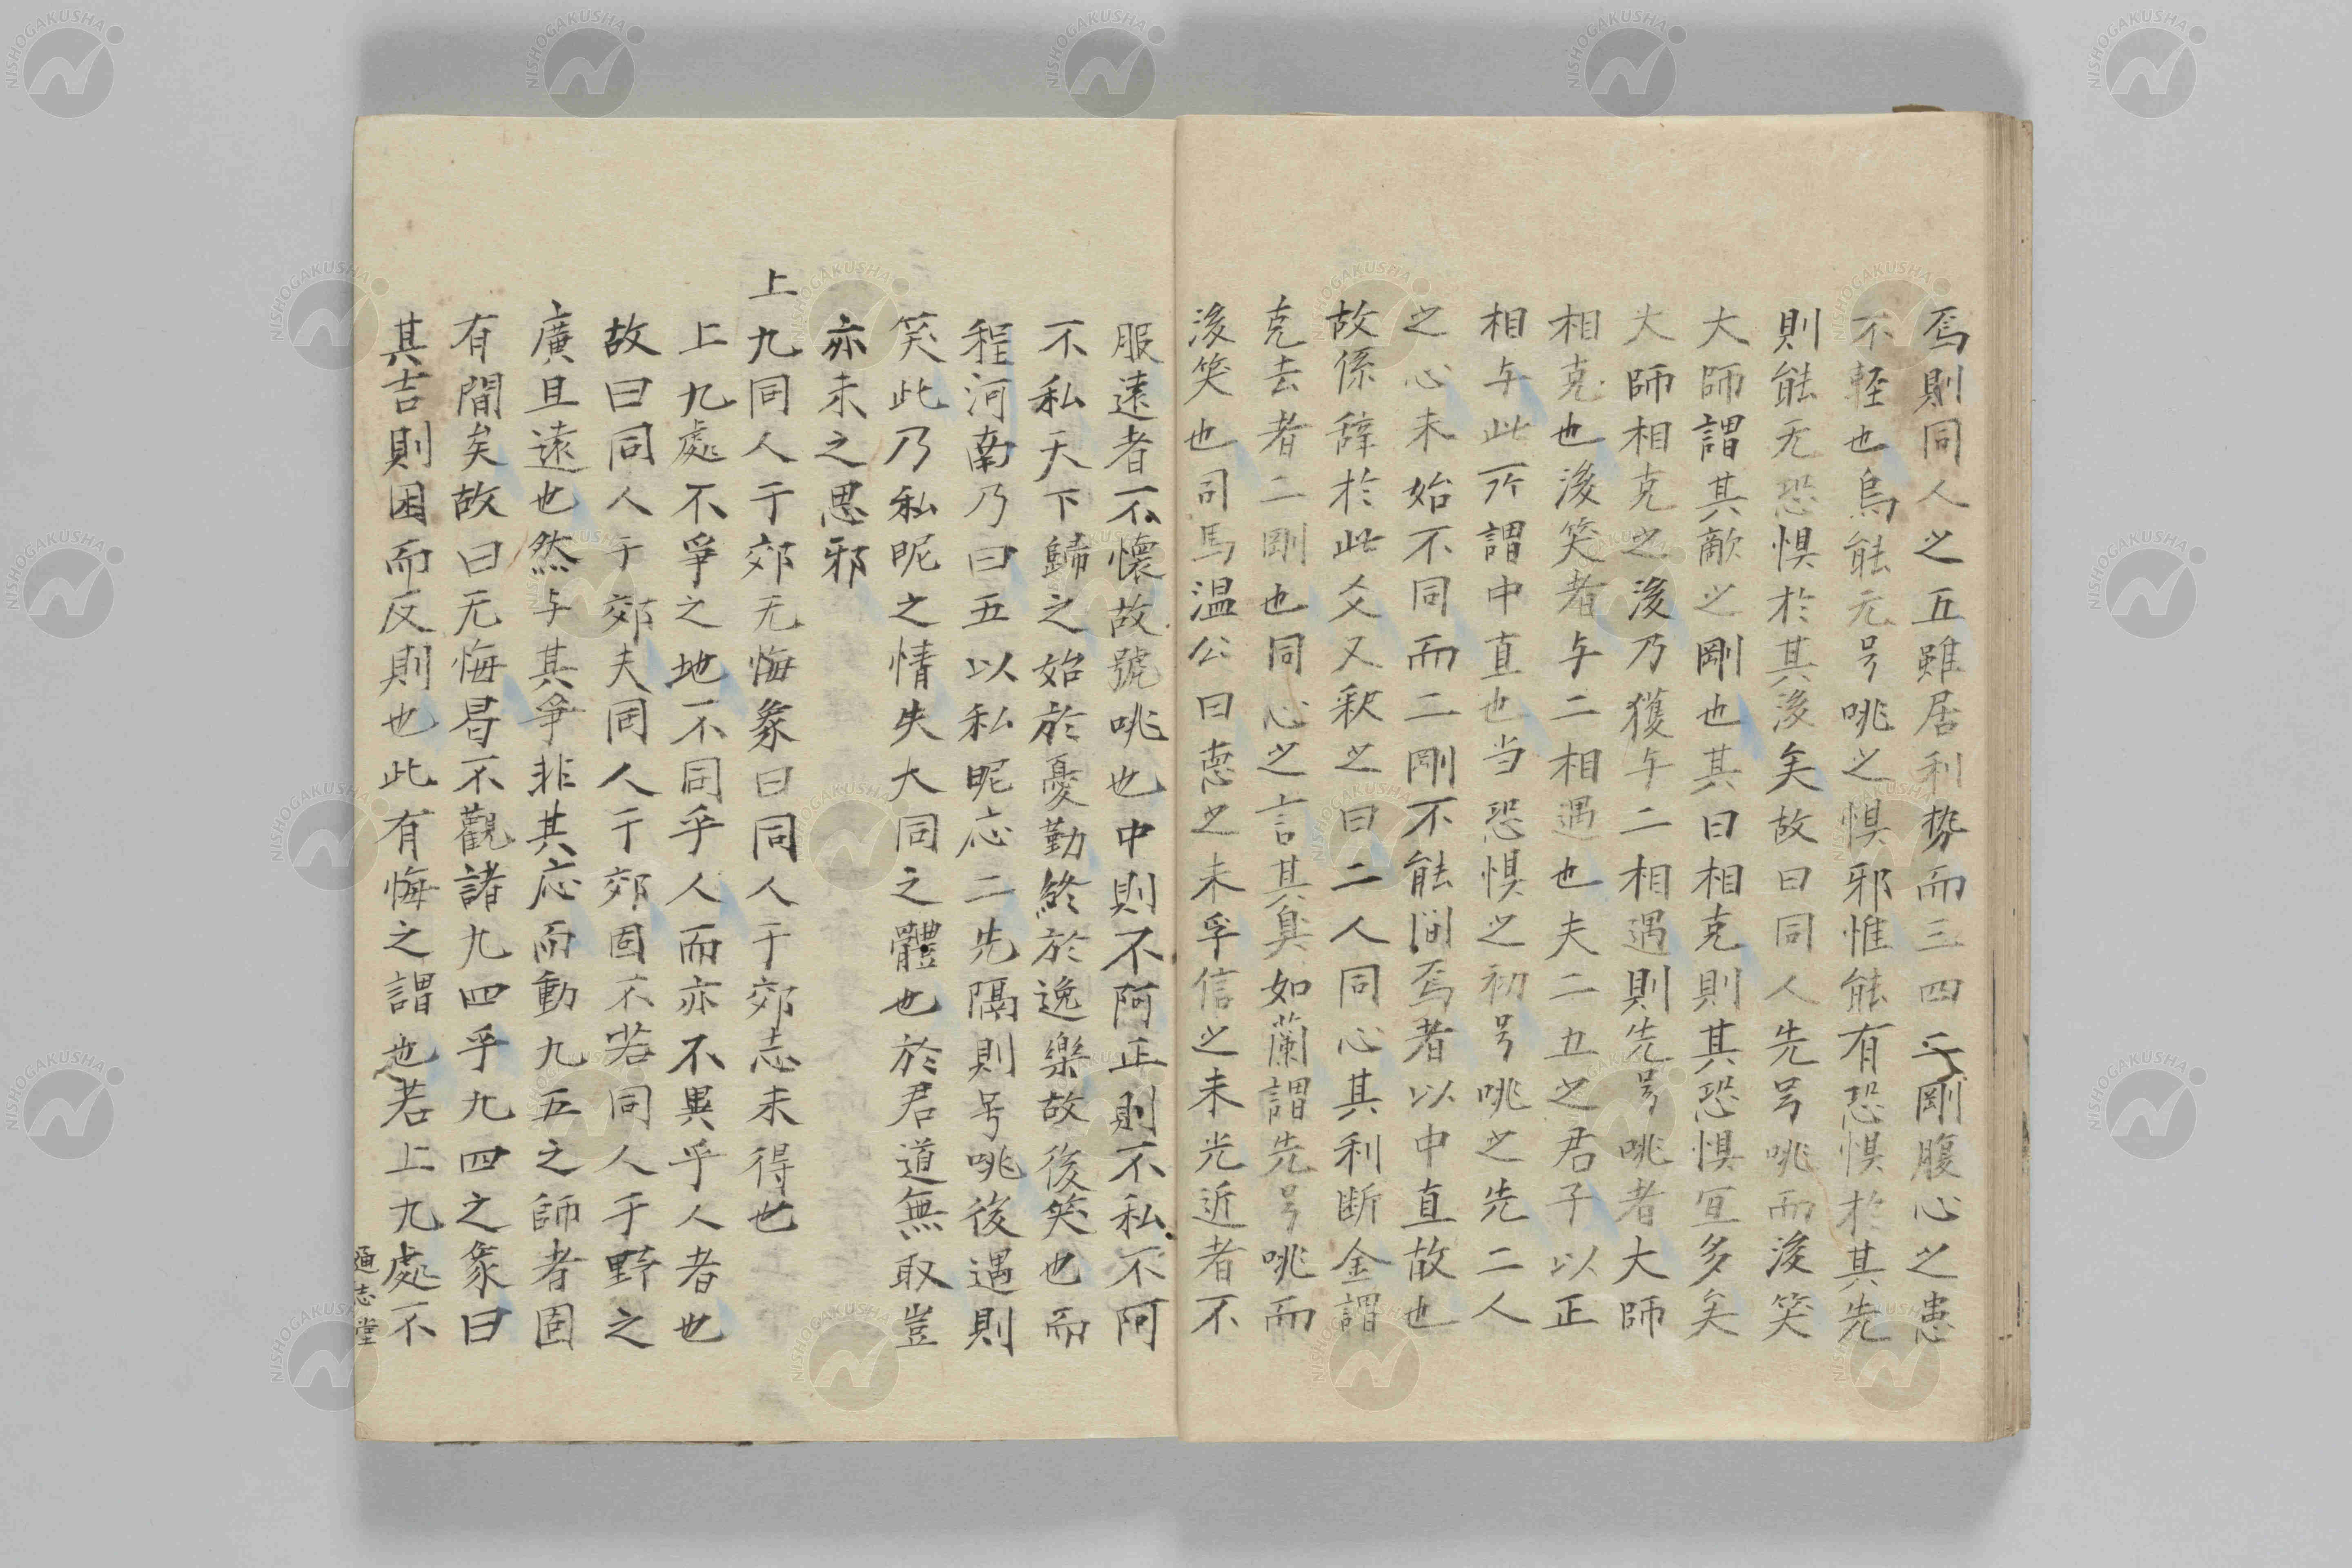 焉則同人之五雖居利势而三四二剛腹心之患
不軽也烏能无号咷之惧邪惟能有恐惧於其先
則能无恐惧於其後矣故曰同人先号咷而後笑
大師謂其敵之剛也其曰相克則其恐惧宜多矣
大師相克之後乃獲与二相遇則先号咷者大師
相克也後笑者与二相遇也夫二五之君子以正
相与此所謂中直也当恐惧之初号咷之先二人
之心未始不同而二剛不能间焉者以中直故也
故係辞於此爻又釈之曰二人同心其利断金謂
克去者二剛也同心之言其臭如蘭謂先号咷而
後笑也司馬温公曰悳之未孚信之未光近者不
服遠者不懷故號咷也中則不阿正則不私不阿
不私天下歸之始於憂勤終於逸樂故後笑也而
程河南乃曰五以私昵応二先隔則号咷後遇則
笑此乃私昵之情失大同之體也於君道無取豈
亦未之思邪
上九同人于郊无悔象曰同人于郊志未得也
上九處不爭之地不同乎人而亦不異乎人者也
故曰同人于郊夫同人于郊固不若同人于野之
廣且遠也然与其爭非其応而動九五之師者固
有間矣故曰无悔曷不觀諸九四乎九四之象曰
其吉則困而反則也此有悔之謂也若上九處不
通志堂
NISHOGAKUSHA